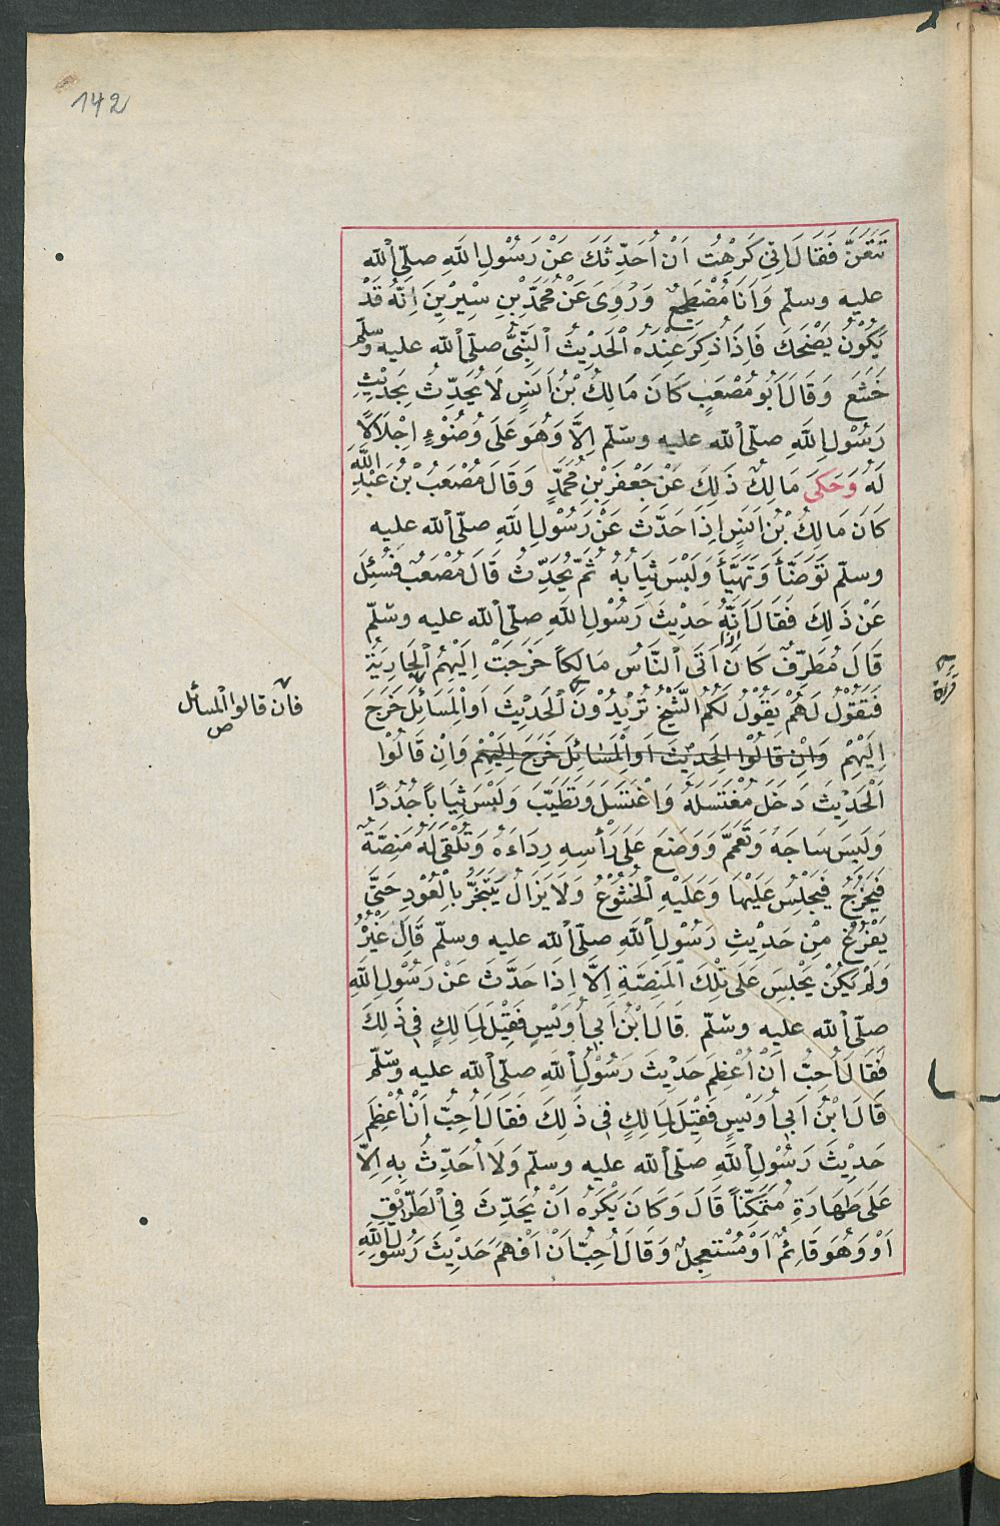 142
تَتَعَنَّ فَقَالَ اِنِّي كَرِهْتُ اَنْ اُحَدِّثَكَ عَنْ رَسُوْلِ اللهِ صلّى الله
عليه وسلّم وَاَنَا مُضْطَجِعٌ وَرُوِيَ عَنْ مُحَمَّدِ بْنِ سِيْرِيْنَ اِنَّهُ قَدْ
يَكُوْنُ يَضْحَكُ فَاِذَا ذُكِرَ عِنْدَهُ الْحَدِيْثُ النَّبِيُّ صلّى الله عليه وسلّم
خَشَعَ وَقَالَ اَبُو مُصْعَبٍ كَانَ مَالِكُ بْنُ اَنَسٍ لَا يُحَدِّثُ بِحَدِيْثِ
رَسُوْلِ اللهِ صلّى الله عليه وسلّم اِلَّا وَهُوَ عَلَى وُضُوْءٍ اِجْلَالًا
لَهُ وَحَكَى مَالِكٌ ذَلِكَ عَنْ جَعْفَرِ بْنِ مُحَمَّدٍ وَقَالَ مُصْعَبُ بْنُ عَبْدِ اللهِ
كَانَ مَالِكُ بْنُ اَنَسٍ اِذَا حَدَّثَ عَنْ رَسُوْلِ اللهِ صلّى الله عليه
وسلّم تَوَضَّأَ وَتَهَيَّأَ وَلَبِسَ ثِيَابَهُ ثُمَّ يُحَدِّثُ قَالَ مُصْعَبٌ فَسُئِلَ
عَنْ ذَلِكَ فَقَالَ اَنَّهُ حَدِيْثَ رَسُوْلِ اللهِ صلّى الله عليه وسلّم
قَالَ مُطَرِّفٌ كَانَ اِذَا اَتَى النَّاسُ مَالِكًا خَرَجَتْ اِلَيْهِمُ الْجَارِيَةُ
فَتَقُوْلُ لَهُمْ يَقُوْلُ لَكُمُ الشَّيْخُ تُرِيْدُوْنَ الْحَدِيْثَ اَوِ الْمَسَائِلَ خَرَجَ
فان قالوا المسائل
ص
اِلَيْهِمْ وَاِنْ قَالُوْا الْحَدِيْثَ اَوِ الْمَسَائِلَ خَرَجَ اِلَيْهِمْ وَاِنْ قَالُوْا
الْحَدِيْثَ دَخَلَ مُغْتَسَلَهُ وَاغْتَسَلَ وَتَطَيَّبَ وَلَبِسَ ثِيَابًا جُدُدًا
وَلَبِسَ سَاجَهُ وَتَعَمَّمَ وَوَضَعَ عَلَى رَأْسِهِ رِدَاءَهُ وَتُلْقَى لَهُ مَنِصَّةٌ
فَيَخْرُجُ فَيَجْلِسُ عَلَيْهَا وَعَلَيْهِ الْخُشُوْعُ وَلَا يَزَالُ يَتَبَخَّرُ بِالْعُوْدِ حَتَّى
يَفْرُغَ مِنْ حَدِيْثِ رَسُوْلِ اللهِ صلّى الله عليه وسلّم قَالَ غَيْرُهُ
وَلَمْ يَكُنْ يَجْلِسَ عَلَى تِلْكَ الْمَنِصَّةِ اِلَّا اِذَا حَدَّثَ عَنْ رَسُوْلِ اللهِ
صلّى الله عليه وسلّم قَالَ ابْنُ اَبِي اُوَيْسٍ فَقِيْلَ لِمَالِكٍ فِي ذَلِكَ
فَقَالَ اُحِبُّ اَنْ اُعْظِمَ حَدِيْثَ رَسُوْلِ اللهِ صلّى الله عليه وسلّم
قَالَ ابْنُ اَبِي اُوَيْسٍ فَقِيْلَ لِمَالِكٍ فِي ذَلِكَ فَقَالَ اُحِبُّ اَنْ اُعْظِمَ
حَدِيْثَ رَسُوْلِ اللهِ صلّى الله عليه وسلّم وَلَا اُحَدِّثُ بِهِ اِلَّا
عَلَى طَهَارَةٍ مُتَمَكِّنًا قَالَ وَكَانَ يَكْرَهُ اَنْ يُحَدِّثَ فِي الطَّرِيْقِ
اَوْ وَهُوَ قَائِمٌ اَوْ مُسْتَعْجِلٌ وَقَالَ اُحِبُّ اَنْ اَفْهَمَ حَدِيْثَ رَسُوْلِ اللهِ